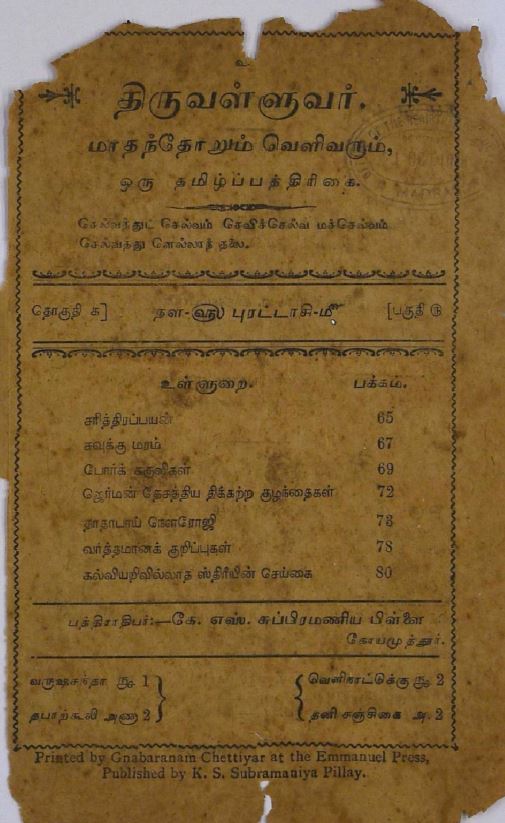 உ
திருவள்ளுவர்.
மாதந்தோறும் வெளிவரும்,
ஒரு தமிழ்ப்பத்திரிகை.
செல்வத்துட் செல்வம் செவிச்செல்வ மச்செல்வம்
செல்வத்து ளெல்லாந் தலை.
தொகுதி க] நள-௵ புரட்டாசி-௴ [பகுதி ௫
உள்ளுறை. பக்கம்.
சரித்திரப்பயன் 65
சவுக்கு மரம் 67
போர்க் கருவிகள் 69
ஜெர்மன் தேசத்திய திக்கற்ற குழந்தைகள் 72
தாதாபாய் நௌரோஜி 73
வர்த்தமானக் குறிப்புகள் 78
கல்வியறிவில்லாத ஸ்திரீயின் செய்கை 80
பத்திராதிபர்:—கே. எஸ். சுப்பிரமணிய பிள்ளை
கோயமுத்தூர்.
வருஷசந்தா ரூ 1 } { வெளிநாட்டுக்கு ரூ 2
தபாற்கூலி அணா 2 } { தனி சஞ்சிகை அ. 2
Printed by Gnabaranam Chettiyar at the Emmanuel Press,
Published by K. S. Subramaniya Pillay.